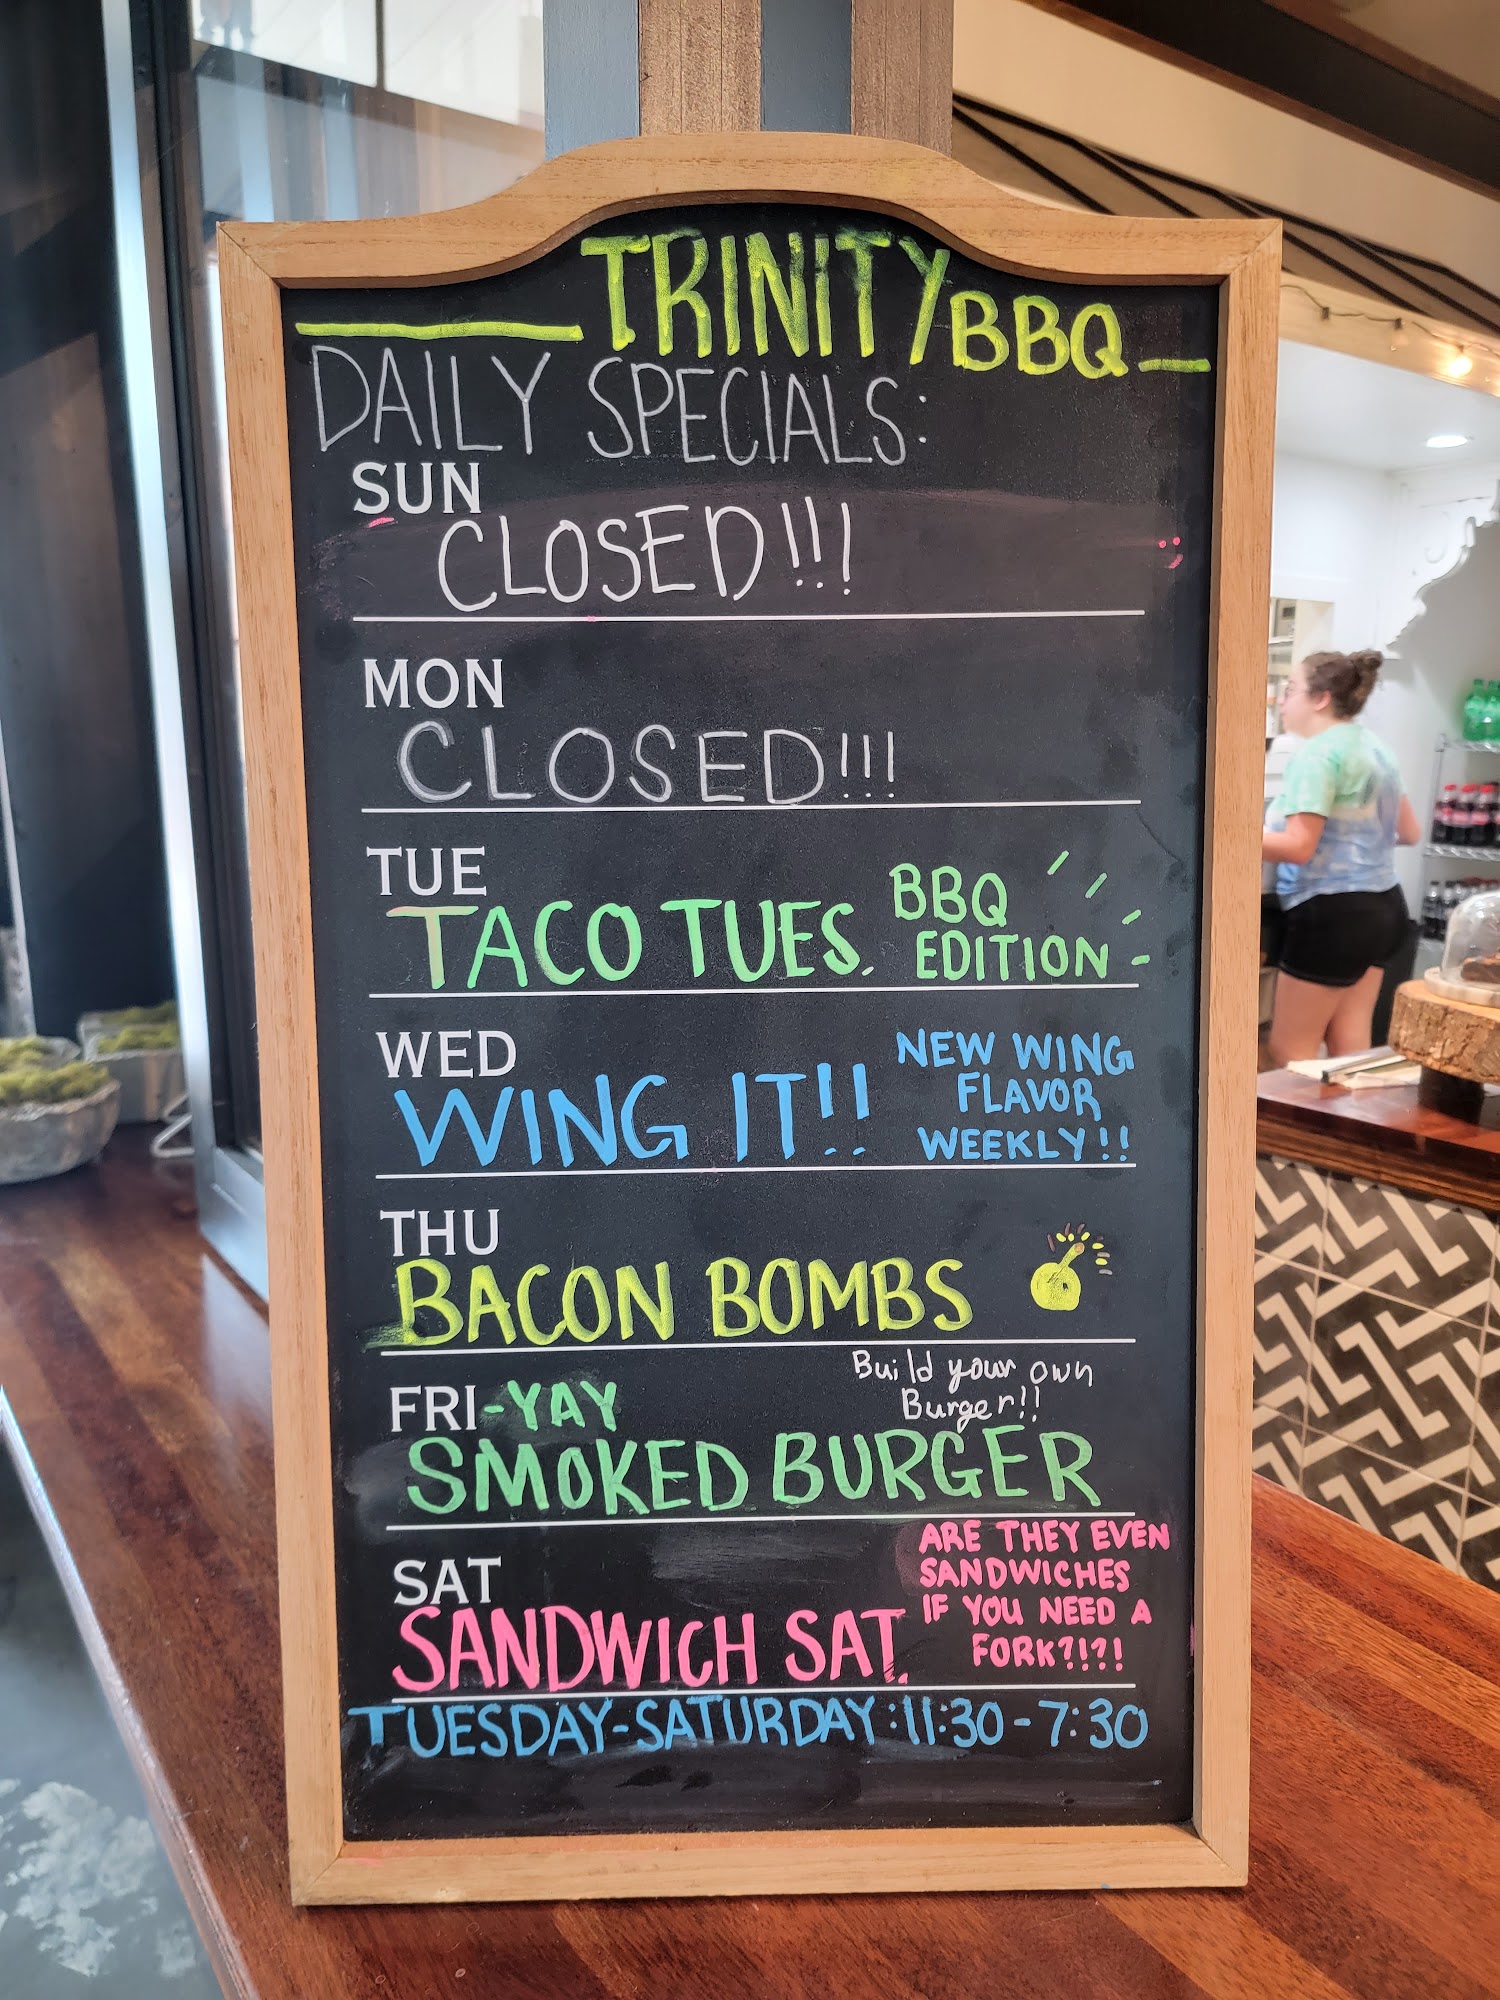 TRINITY BBQ
DAILY SPECIALS:
SUN
CLOSED!!!
MON
CLOSED!!!
TUE
TACO TUES.
BBQ
EDITION
WED
WING IT!!
NEW WING
FLAVOR
WEEKLY!!
THU
BACON BOMBS
FRI-YAY
Build your own
Burger!!
SMOKED BURGER
SAT
SANDWICH SAT.
ARE THEY EVEN
SANDWICHES
IF YOU NEED A
FORK?!?!
TUESDAY-SATURDAY:11:30-7:30